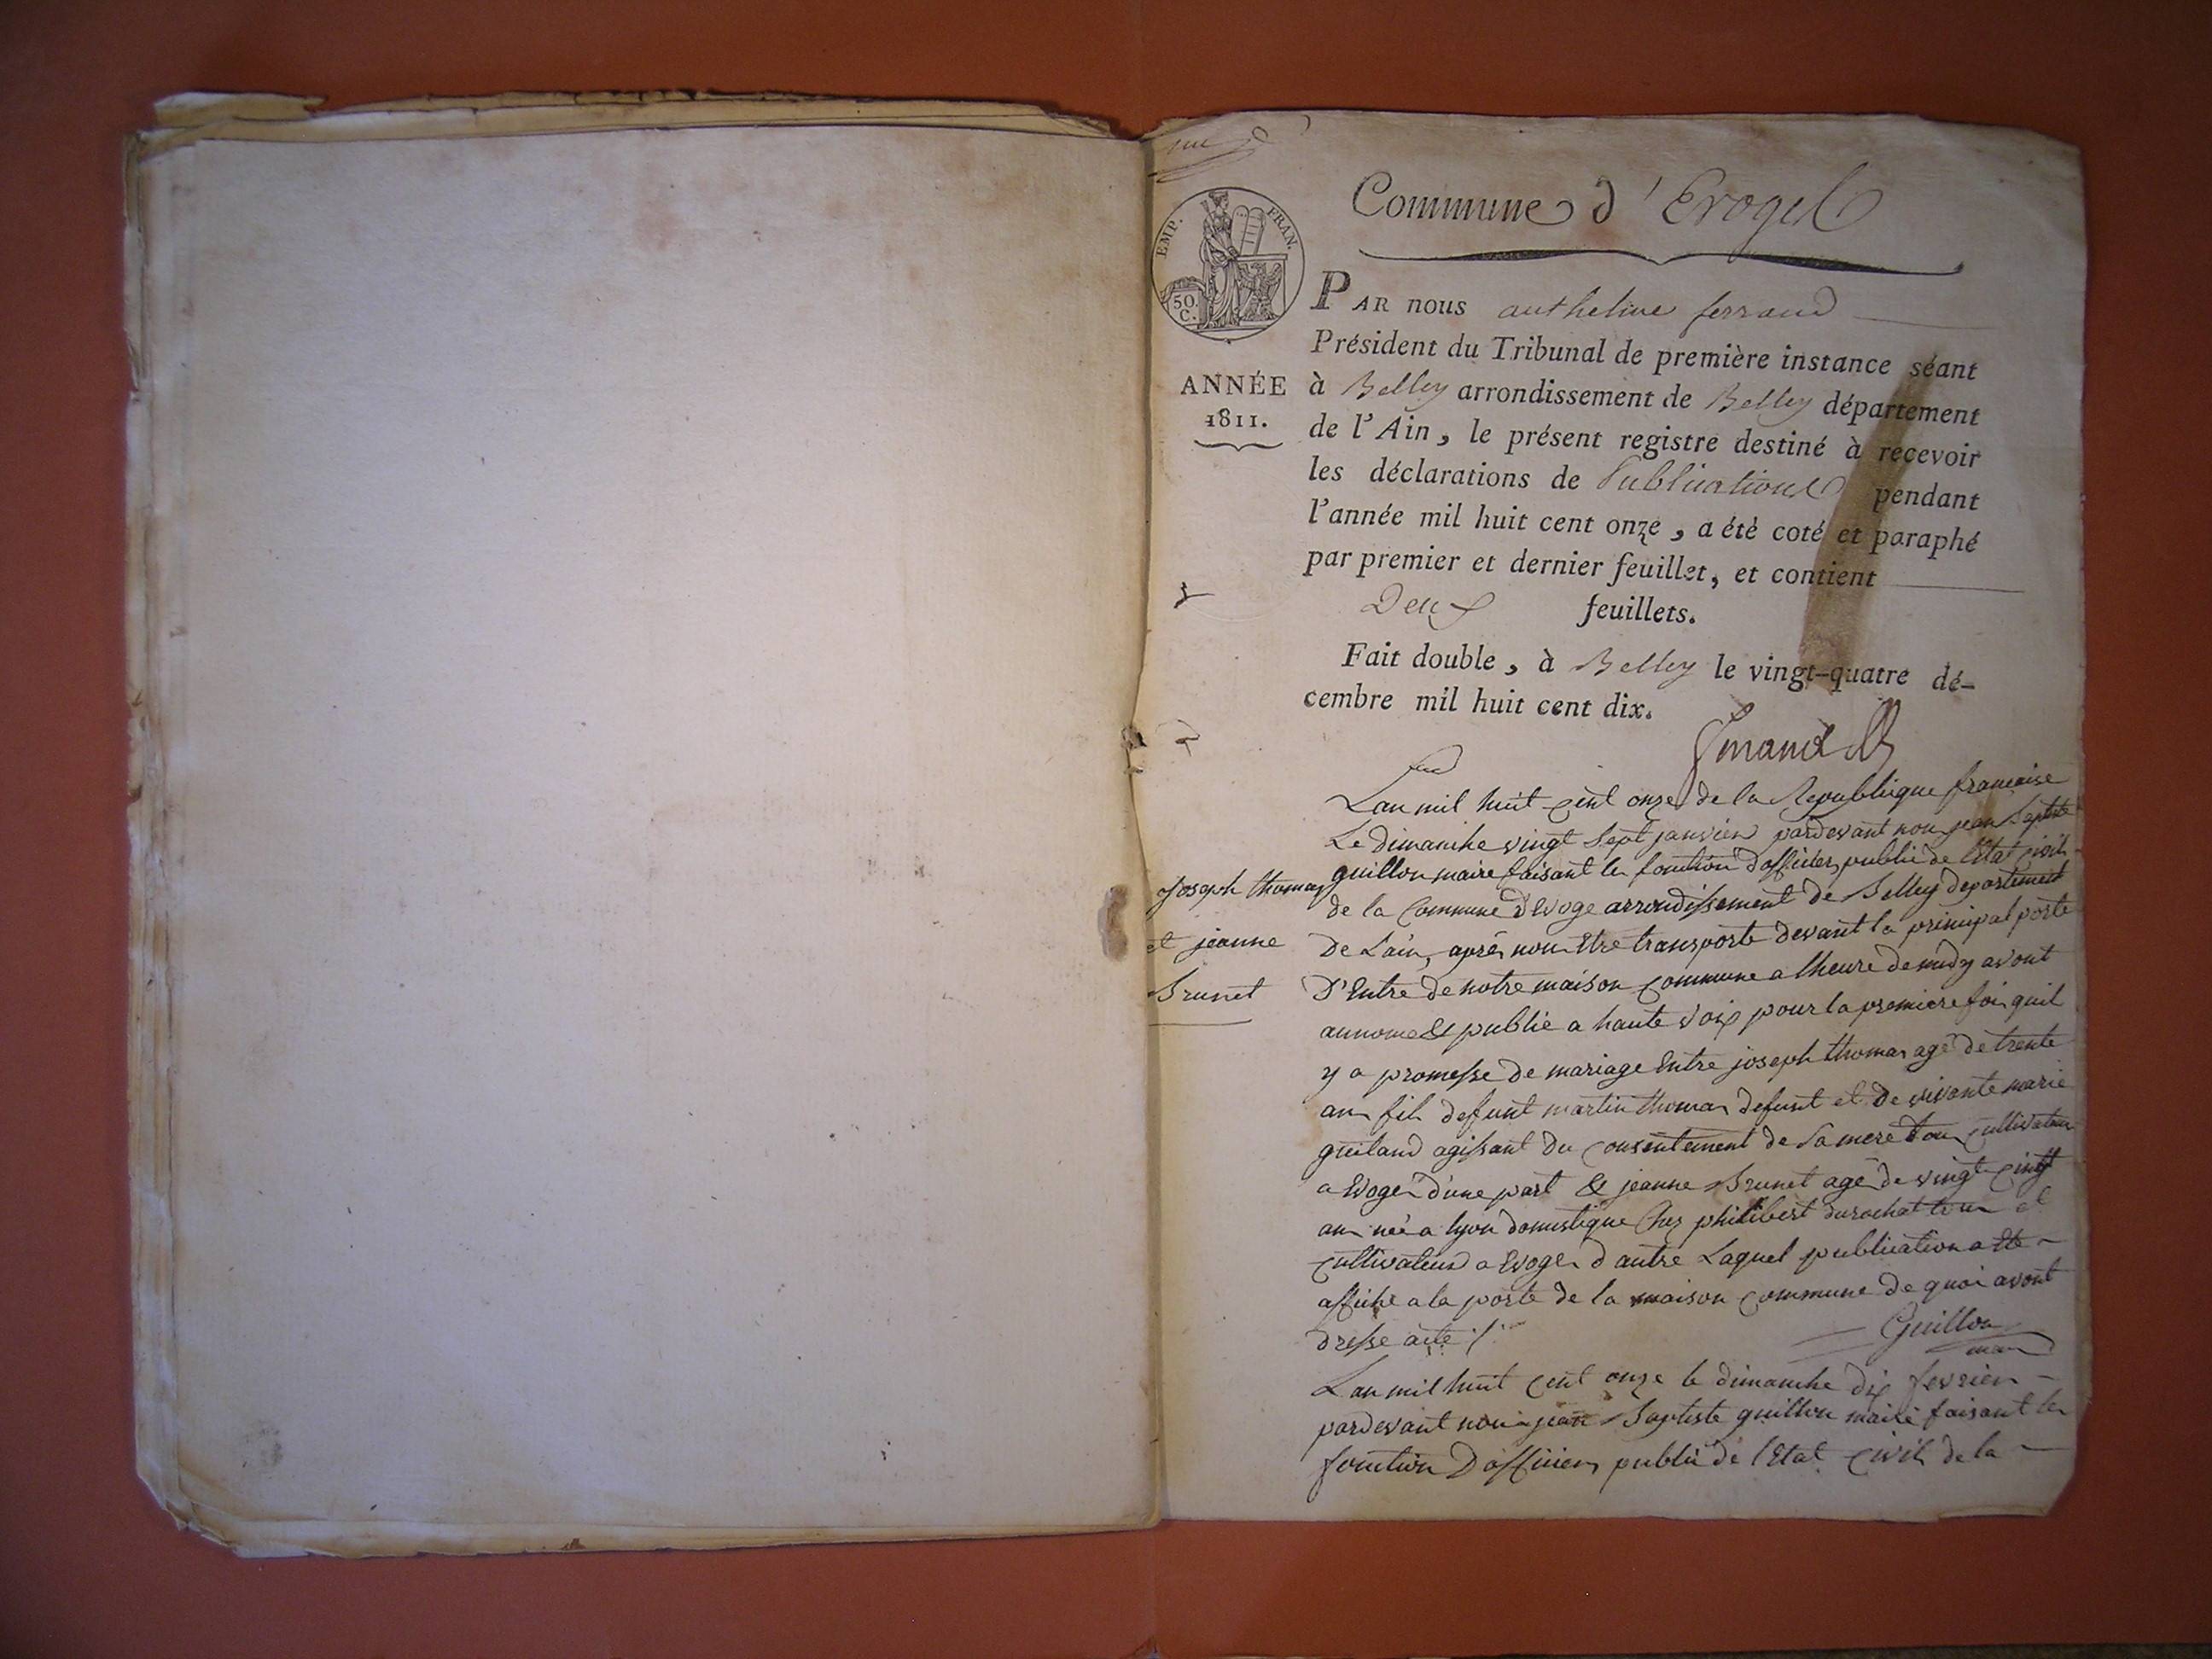 une
Commune d'Evoges
EMP. FRAN.
50.
C.
ANNÉE
1811.
PAR nous anthelme ferrand
Président du Tribunal de première instance séant
à Belley arrondissement de Belley département
de l'Ain, le présent registre destiné à recevoir
les déclarations de Publications pendant
l'année mil huit cent onze, a été coté et paraphé
par premier et dernier feuillet, et contient
Deux feuillets.
Fait double, à Belley le vingt-quatre dé-
cembre mil huit cent dix.
Joseph thomas
et jeanne
Brunet
Lan mil huit cent onze de la Republique francaise
Le dimanche vingt Sept janvier pardevant nous jean Baptiste
guillon maire faisant les fonction dofficier public de letat civil
de la Commune Devoge arrondissement de Belley departement
De Lain, apres nous Etre transporte devant la principal porte
D'Entre de notre maison commune a lheure de midy avont
annonce & publie a haute voix pour la premiere fois quil
y a promesse de mariage Entre joseph thomas age de trente
ans fils defunt martin thomas defunt et de vivante marie
guiland agissant du consentement de Sa mere tous cultivateur
a Evoges d'une part & jeanne Brunet age de vingt cinq
ans née a lyon domestique Chez philibert durochat tous et
cultivateurs a Evoges d autre Laquel publication a Ete
affiche a la porte de la maison commune de quoi avont
dresse acte ./. Guillon
maire
Lan mil huit cent onze le dimanche dix fevrier
pardevant nous jean Baptiste guillon maire faisant les
fonction D'officier public de l'Etat civil de la